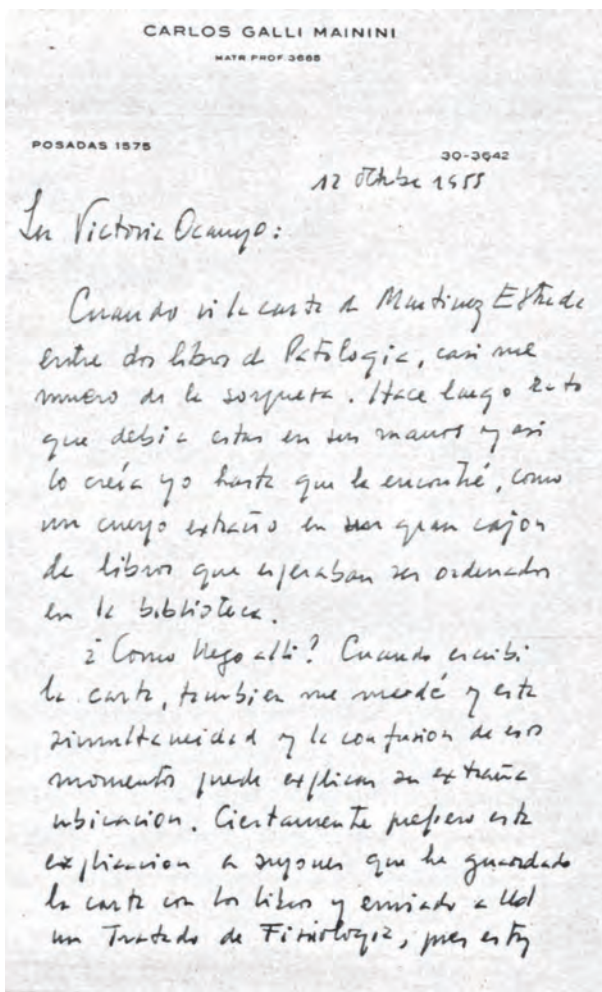 CARLOS GALLI MAININI
MATR. PROF. 3665
POSADAS 1575
30-3642
12 Octubre 1955
Victoria Ocampo:
Cuando vi la carta de Martinez Estrada
entre dos libros de Patologia, casi me
muero de la sorpresa. Hace largo rato
que debia estar en sus manos y asi
lo creía yo hasta que la encontré, como
un cuerpo extraño en un gran cajon
de libros que esperaban ser ordenados
en la biblioteca.
¿Como llego alli? Cuando escribi
la carta, tambien me mudé y esta
simultaneidad y la confusion de esos
momentos puede explicar su extraña
ubicacion. Ciertamente prefiero esta
explicacion a suponer que he guardado
la carta con los libros y enviado a Ud
un Tratado de Fisiologia, pues estoy